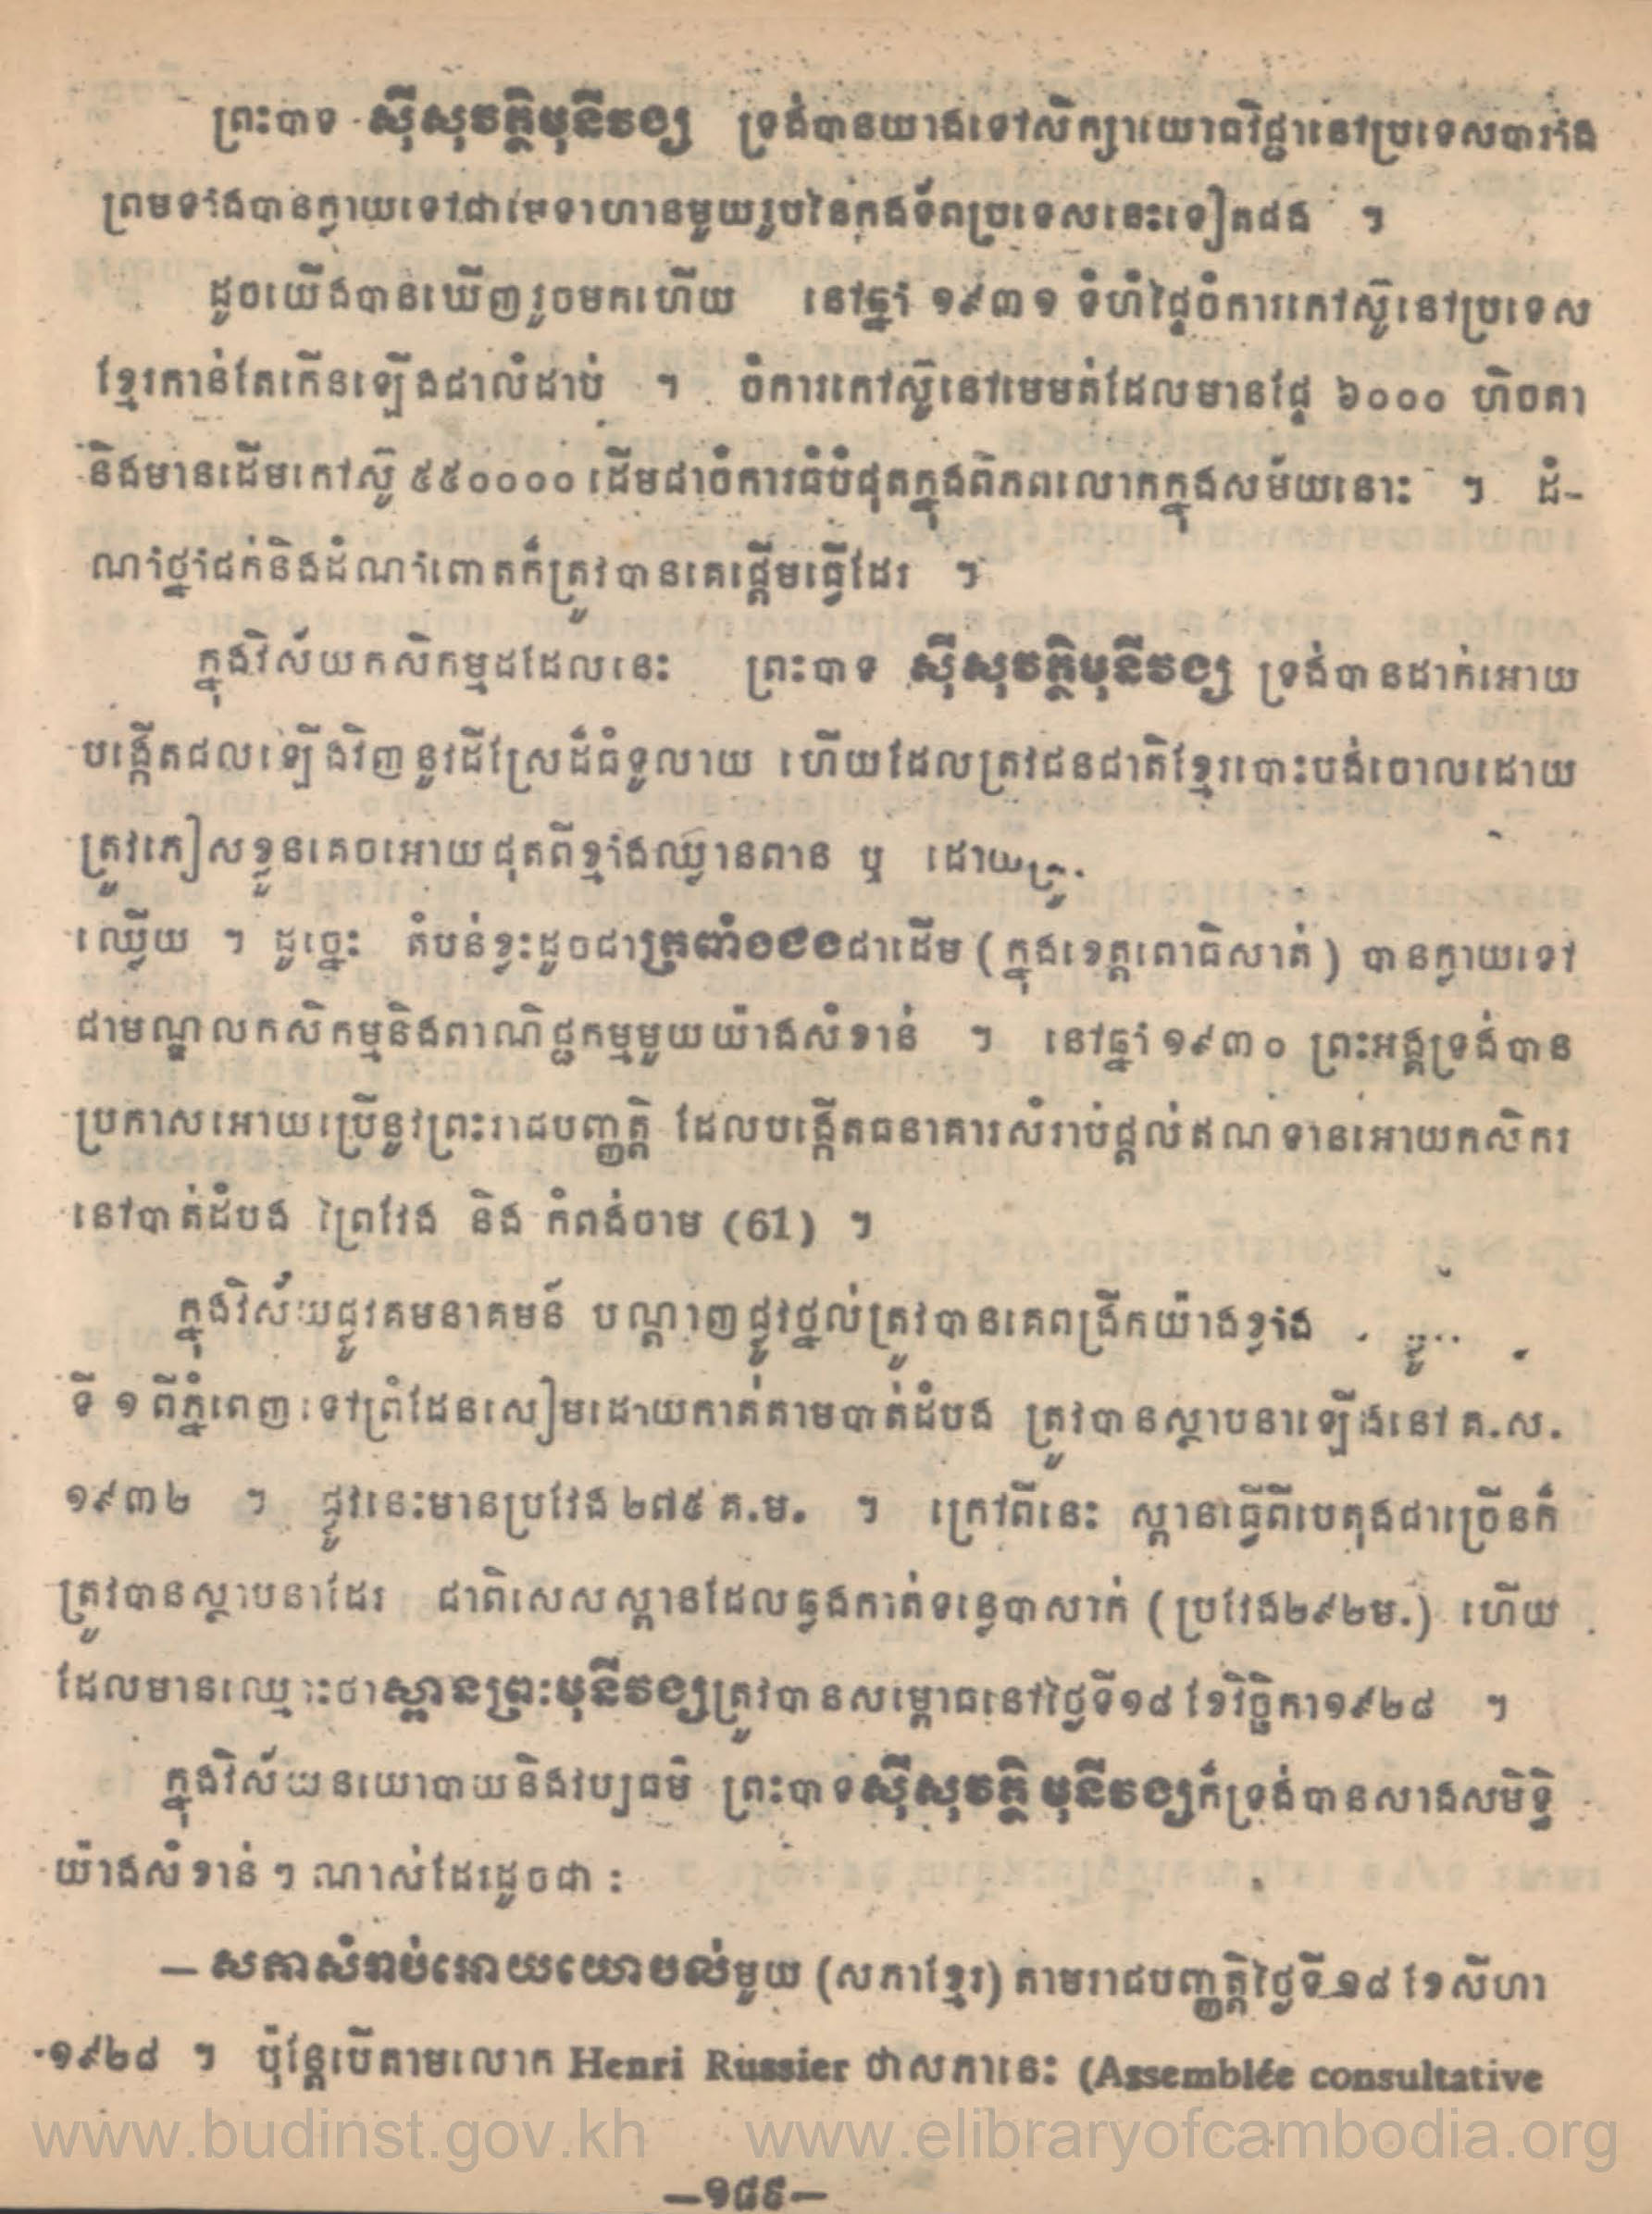 ព្រះបាទ ស៊ីសុវត្ថិមុនីវង្ស ទ្រង់បានយាងទៅសិក្សាយោធវិជ្ជានៅប្រទេសបារាំង
ព្រមទាំងបានក្លាយទៅជាមេទាហានមួយរូបនៃកងទ័ពប្រទេសនេះទៀតផង ។
ដូចយើងបានឃើញរួចមកហើយ នៅឆ្នាំ ១៩៣១ ទំហំផ្ទៃចំការកៅស៊ូនៅប្រទេស
ខ្មែរកាន់តែកើនឡើងជាលំដាប់ ។ ចំការកៅស៊ូនៅមេមត់ដែលមានផ្ទៃ ៦០០០ ហិចតា
និងមានដើមកៅស៊ូ ៥៥០០០០ ដើមជាចំការធំបំផុតក្នុងពិភពលោកក្នុងសម័យនោះ ។ ដំ-
ណាំថ្នាំជក់និងដំណាំពោតក៏ត្រូវបានគេផ្តើមធ្វើដែរ ។
ក្នុងវិស័យកសិកម្មដដែលនេះ ព្រះបាទ ស៊ីសុវត្ថិមុនីវង្ស ទ្រង់បានដាក់អោយ
បង្កើតផលឡើងវិញនូវដីស្រែដ៏ធំទូលាយ ហើយដែលត្រូវជនជាតិខ្មែរបោះបង់ចោលដោយ
ត្រូវភៀសខ្លួនគេចអោយផុតពីខ្មាំងឈ្លានពាន ឬ ដោយត្រូវ
ឈ្លើយ ។ ដូច្នេះ តំបន់ខ្លះដូចជាត្រពាំងជងជាដើម (ក្នុងខេត្តពោធិសាត់) បានក្លាយទៅ
ជាមណ្ឌលកសិកម្មនិងពាណិជ្ជកម្មមួយយ៉ាងសំខាន់ ។ នៅឆ្នាំ ១៩៣០ ព្រះអង្គទ្រង់បាន
ប្រកាសអោយប្រើនូវព្រះរាជបញ្ញត្តិ ដែលបង្កើតធនាគារសំរាប់ផ្តល់ឥណទានអោយកសិករ
នៅបាត់ដំបង ព្រៃវែង និង កំពង់ចាម (61) ។
ក្នុងវិស័យផ្លូវគមនាគមន៍ បណ្តាញផ្លូវថ្នល់ត្រូវបានគេពង្រីកយ៉ាងខ្លាំង
ទី ១ ពីភ្នំពេញទៅព្រំដែនសៀមដោយកាត់តាមបាត់ដំបង ត្រូវបានស្ថាបនាឡើងនៅ គ.ស.
១៩៣២ ។ ផ្លូវនេះមានប្រវែង ២៧៥ គ.ម. ។ ក្រៅពីនេះ ស្ពានធ្វើពីបេតុងជាច្រើនក៏
ត្រូវបានស្ថាបនាដែរ ជាពិសេសស្ពានដែលឆ្លងកាត់ទន្លេបាសាក់ (ប្រវែង២៩២ម.) ហើយ
ដែលមានឈ្មោះថាស្ពានព្រះមុនីវង្សត្រូវបានសម្ពោធនៅថ្ងៃទី១៨ ខែវិច្ឆិកា១៩២៨ ។
ក្នុងវិស័យនយោបាយនិងវប្បធម៌ ព្រះបាទស៊ីសុវត្ថិ មុនីវង្សក៏ទ្រង់បានសាងសមិទ្ធិ
យ៉ាងសំខាន់ៗ ណាស់ដែរដូចជា :
— សភាសំរាប់អោយយោបល់មួយ (សភាខ្មែរ) តាមរាជបញ្ញត្តិថ្ងៃទី ១៨ ខែសីហា
១៩២៨ ។ ប៉ុន្តែបើតាមលោក Henri Russier ថាសភានេះ (Assemblée consultative
www.budinst.gov.kh www.elibraryofcambodia.org
—១៨៩—